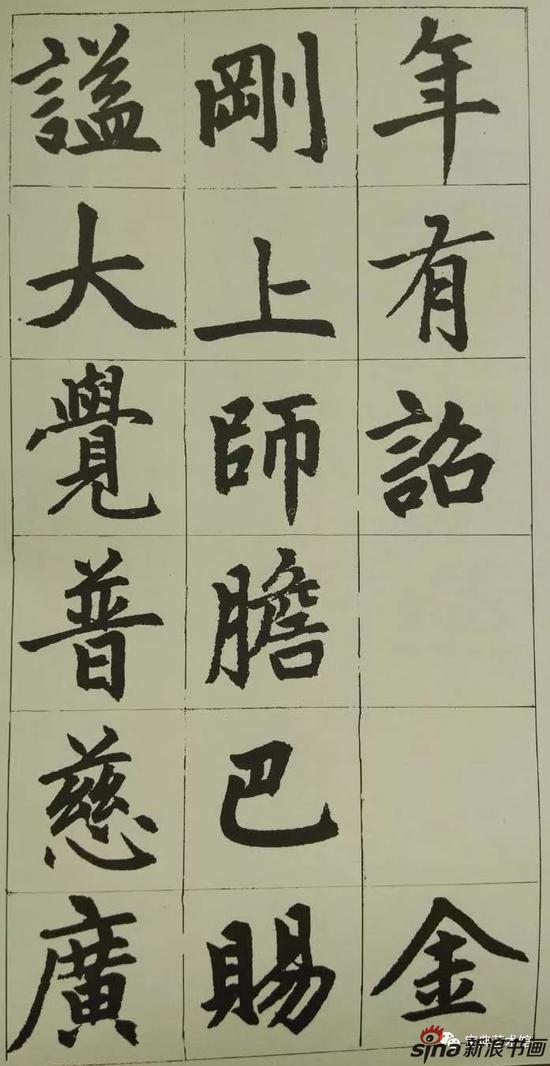 年有詔金
剛上師膽巴賜
謚大覺普慈廣
sina新浪书画